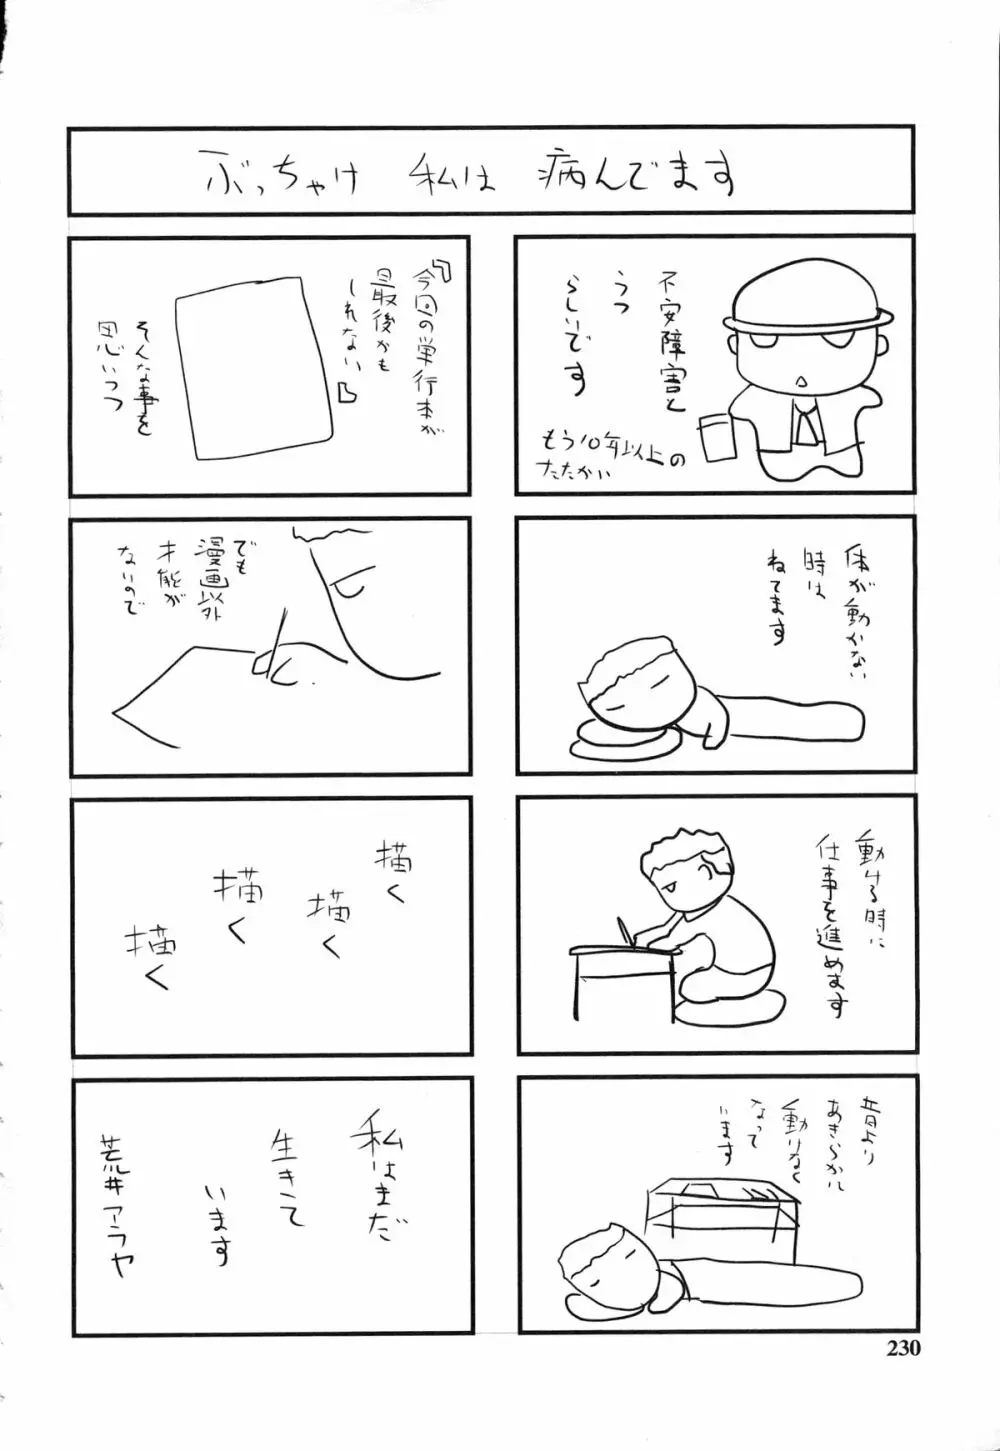 ぶっちゃけ 私は 病んでます
不安障害と
うつ
らしいです
もう10年以上の
たたかい
体が動かない
時は
ねてます
動ける時に
仕事を進めます
昔より
あきらかに
動けなく
なって
います
『今回の単行本が
最後かも
しれない』
そんな事を
思いつつ
でも
漫画以外
才能が
ないので
描く
描く
描く
描く
私はまだ
生きて
います
荒井アラヤ
230